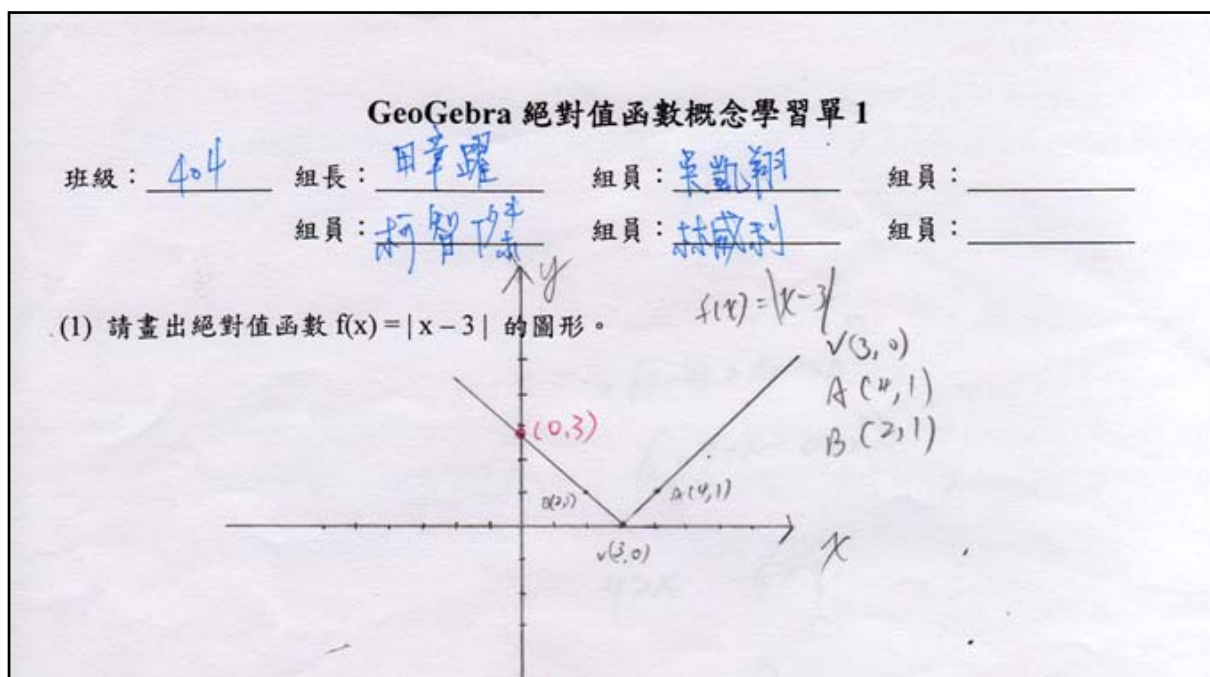 GeoGebra 絕對值函數概念學習單 1
班級：404 組長：田章躍 組員：吳凱翔 組員：
組員：柯智 組員：林威利 組員：
(1) 請畫出絕對值函數 f(x) = | x – 3 | 的圖形。
y
f(x) = |x-3|
V(3,0)
A(4,1)
B(2,1)
(0,3)
B(2,1)
A(4,1)
V(3,0)
x